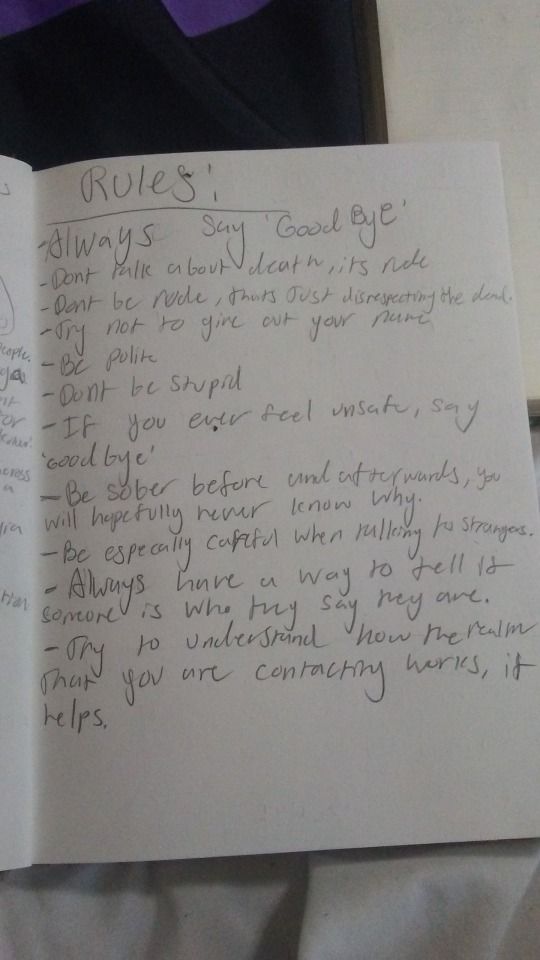 Rules:
-Always Say 'Good Bye'
-Dont talk about death, its rude
-Dont be rude, thats Just disrespecting the dead.
-Try not to give out your name
-Be polite
-Dont be stupid
-If you ever feel unsafe, say
'goodbye'
-Be sober before and afterwards, you
will hopefully never know why.
-Be especally careful when talking to strangers.
-Always have a way to tell if
someone is who they say they are.
-Try to understand how the realm
that you are contacting works, it
helps.